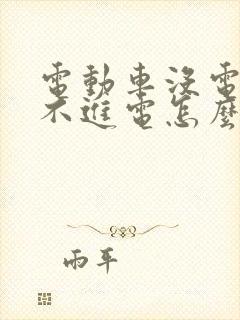 電動車沒電
不進電怎麼
雨平